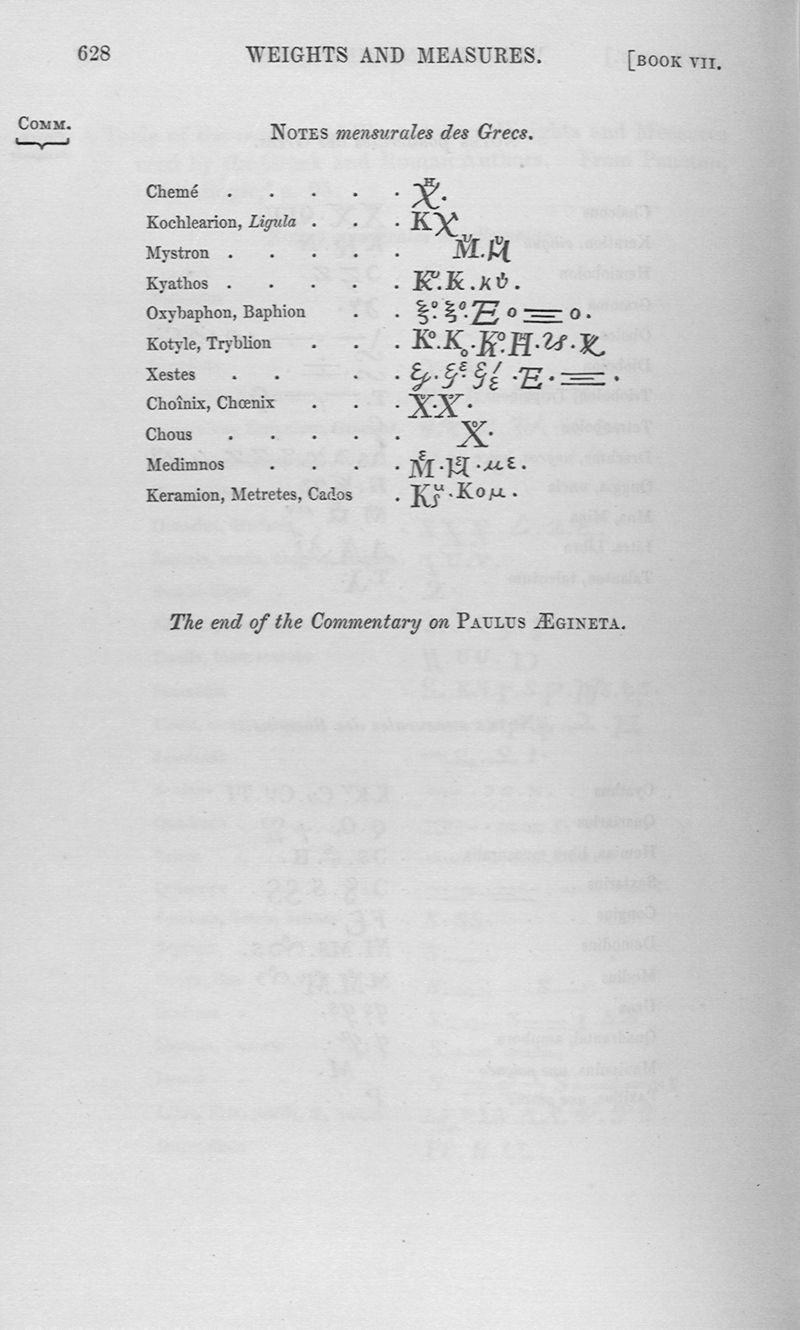 628 WEIGHTS AND MEASURES. [BOOK VII.
COMM.
NOTES mensurales des Grecs.
Chemé . . . . .
Kochlearion, Ligula . . . . KX
Mystron . . . . .
Kyathos . . . . .
Oxybaphon, Baphion . .
Kotyle, Tryblion . . .
Xestes . . . .
Choînix, Chœnix . . . X·X·
Chous . . . . .
Medimnos . . . .
Keramion, Metretes, Cados .
The end of the Commentary on PAULUS ÆGINETA.